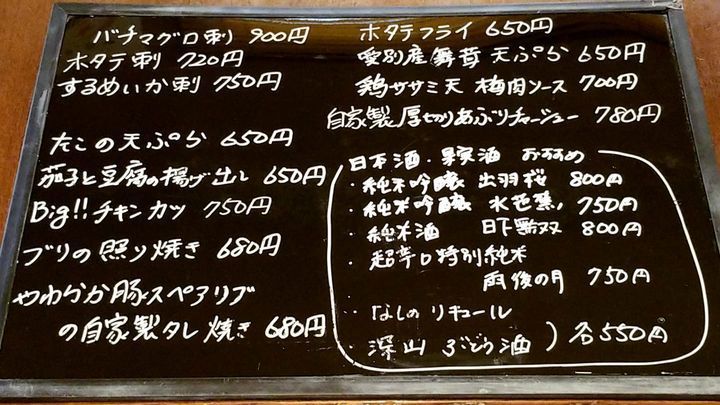 バチマグロ刺 900円
ホタテ刺 720円
するめいか刺 750円
たこの天ぷら 650円
茄子と豆腐の揚げ出し 650円
Big!! チキンカツ 750円
ブリの照り焼き 680円
やわらか豚スペアリブ
の自家製タレ焼き 680円
ホタテフライ 650円
愛別産舞茸 天ぷら 650円
鶏ササミ天 梅肉ソース 700円
自家製厚切りあぶりチャーシュー 780円
日本酒・果実酒 おすすめ
・純米吟醸 出羽桜 800円
・純米吟醸 水芭蕉 750円
・純米酒 日下無双 800円
・超辛口特別純米
雨後の月 750円
・なしのリキュール
・深山ぶどう酒 ) 各550円